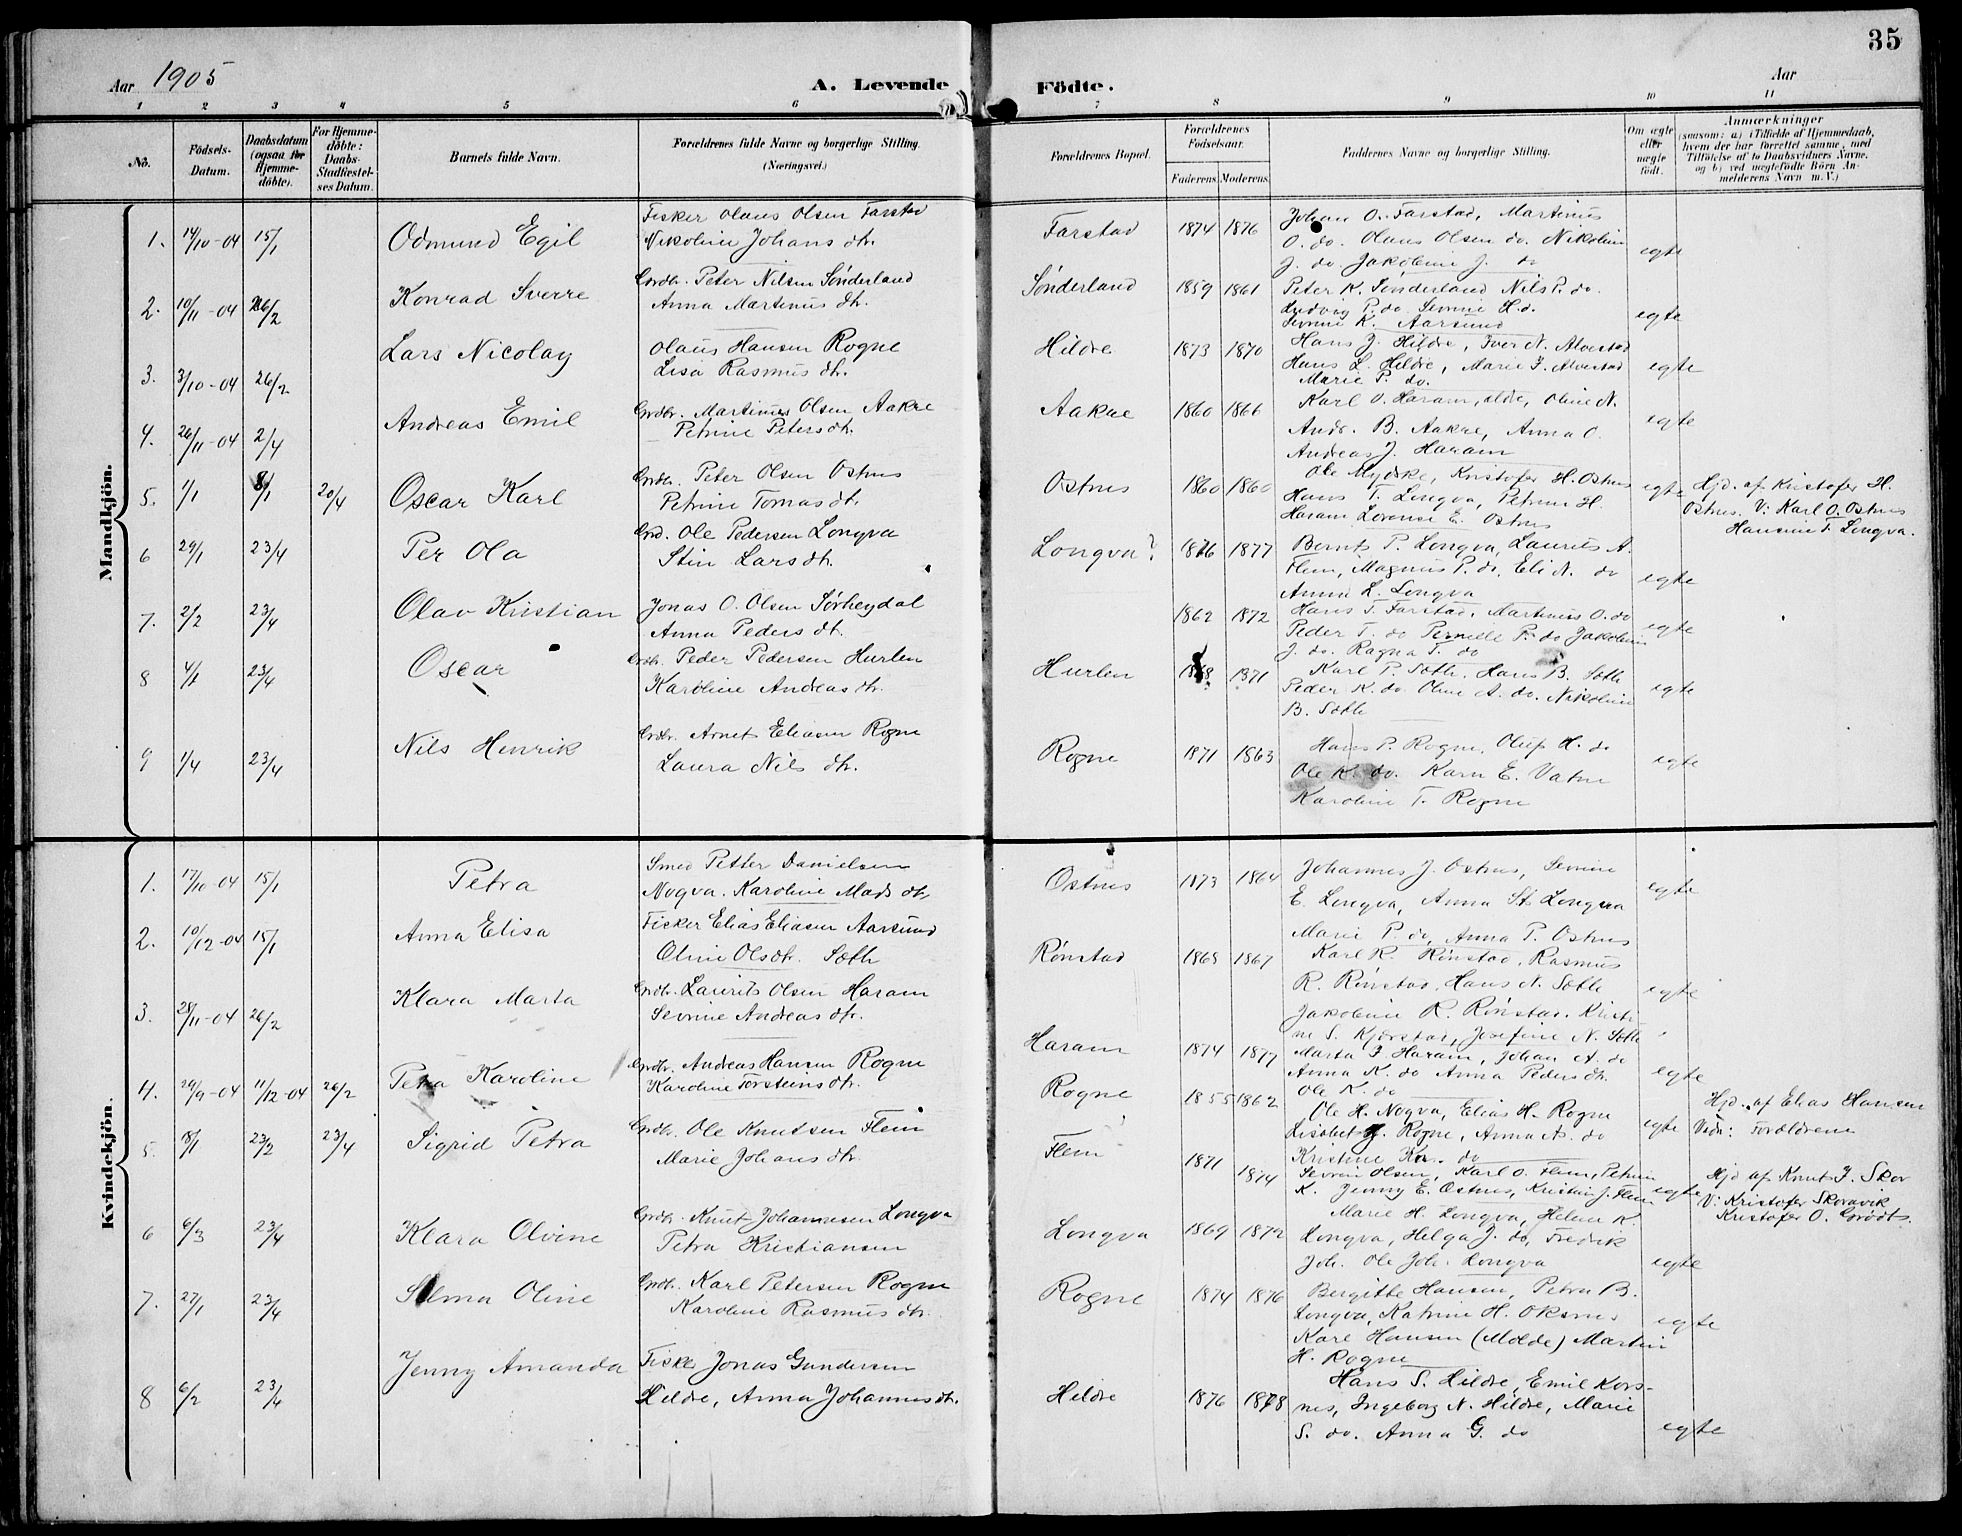 35
Aar 1905
A. Levende Födte.
Aar
1 2 3 4 5 6 7 8 9 10 11
No.
Födsels-Datum.
Daabsdatum (ogsaa for Hjemmedöbte).
For Hjemmedöbte: Daabs-Stadfæstelses Datum.
Barnets fulde Navn.
Forældrenes fulde Navne og borgerlige Stilling. (Næringsvei.)
Forældrenes Bopæl.
Forældrenes Födselsaar.
Faderens. Moderens.
Faddernes Navne og borgerlige Stilling.
Om ægte eller uægte födt.
Anmærkninger (saasom: a) i Tilfælde af Hjemmedaab, hvem der har forrettet samme, med Tilföielse af to Daabsvidners Navne, og b) ved uægtefödte Börn Anmelderens Navn m. V.)
Mandkjön.
1. 14/10-04 15/1 Odmund Egil
Fisker Olaus Olsen Farstad
Nikoline Johansdtr.
Farstad 1874 1876
Johan O. Farstad, Martinus
O. do. Olaus Olsen do. Nikoline
J. do Jakobine J. do
egte
2. 10/11-04 26/2 Konrad Sverre
Grdbr. Peter Nilsen Sønderland
Anna Martinusdtr.
Sønderland 1859 1861
Peter K. Sønderland Nils P. do.
Ludvig P. do Sevrine H. do.
Sevrine K. Aarsund
egte
3. 3/10-04 26/2 Lars Nicolay
Olaus Hansen Rogne
Lisa Rasmusdtr.
Hildre 1873 1870
Hans J. Hildre, Iver N. Alvestad
Hans L. Hildre, Marie I. Alvestad
Marie P. do.
egte
4. 26/11-04 2/4 Andreas Emil
Grdbr. Martinus Olsen Aakre
Petrine Petersdtr.
Aakre 1860 1866
Karl O. Haram, ældre, Oline N.
Andr. B. Aakre, Anna O.
Andreas J. Haram
egte
5. 1/1 8/1 20/4 Oscar Karl
Grdbr. Peter Olsen Ostnes
Petrine Tomasdtr.
Ostnes 1860 1860
Ole Myrske, Kristofer H. Ostnes
Hans T. Longva, Petrine H.
Haram Lovense E. Ostnes
egte
Hjd. af Kristofer H.
Ostnes. V: Karl O. Ostnes
Hansine T. Longva.
6 29/1 23/4 Per Ola
Grd. Ole Pedersen Longva
Stine Larsdtr.
Longva? 1876 1877
Bernt P. Longva, Laurits A.
Flem, Magnus P. do, Eli N. do
Anna L. Longva
egte
7. 2/2 23/4 Olav Kristian
Jonas O. Olsen Sørheydal
Anna Pedersdt.
1862 1872
Hans T. Farstad, Martinus O. do
Peder T. do Pernille P. do Jakobine
J. do. Ragna T. do
egte
8 4/1 23/4 Oscar
Grdbr. Peder Pedersen Hurlen
Karoline Andreasdtr.
Hurlen 1868 1871
Karl P. Sæth, Hans B. Sæth
Peder K. do Oline A. do. Nikoline
B. Sæth
egte
9 1/4 23/4 Nils Henrik
Grdbr. Arnet Eliasen Rogne
Laura Nilsdtr.
Rogne 1871 1863
Hans P. Rogne, Oluf H. do
Ole K. do. Karn E. Vatne
Karoline T. Rogne
egte
Kvindekjön.
1. 17/10-04 15/1 Petra
Smed Petter Danielsen
Nogva. Karoline Madsdtr.
Ostnes 1873 1864
Johannes J. Ostnes, Sevrine
E. Longva, Anna St. Longva
Marie P. do, Anna P. Ostnes
egte
2. 10/12-04 15/1 Anna Elisa
Fisker Elias Eliasen Aarsund
Oline Olsdtr. Sæth
Rønstad 1868 1867
Karl R. Rønstad, Rasmus
R. Rønstad, Hans N. Sæth
Jakobine R. Rønstad, Kristine
S. Kjærstad, Josefine N. Sæth
egte
3. 28/11-04 26/2 Klara Marta
Grdbr. Laurits Olsen Haram
Sevrine Andreasdtr.
Haram 1874 1877
Marta I. Haram, Johan A. do
Anna K. do Anna Pedersdtr.
Ole K. do
egte
4. 29/9-04 11/12-04 26/2 Petra Karoline
Grdbr. Andreas Hansen Rogne
Karoline Torsteinsdtr.
Rogne 1855 1862
Ole H. Nogva, Elias H. Rogne
Lisabet J. Rogne, Anna A. do
Kristine Kr. do
egte
Hjd. af Elias Hansen
Vidn: Forældrene
5. 8/1 23/2 23/4 Sigrid Petra
Grdbr. Ole Knutsen Flem
Marie Johansdtr.
Flem 1871 1874
Sevrin Olsen, Karl O. Flem, Petrine
K. Jenny E. Ostnes, Kristin J. Flem
egte
Hjd af Knut I. Skor
V: Kristofer Skoravik
Kristofer O. Grødts.
6 6/3 23/4 Klara Olvine
Grdbr. Knut Johannesen Longva
Petra Kristiansen
Longva 1869 1872
Marie H. Longva, Helene K.
Longva, Helga J. do, Fredrik
Joh. Ole Joh. Longva
egte
7. 27/1 23/4 Selma Oline
Grdbr. Karl Petersen Rogne
Karoline Rasmusdtr.
Rogne 1874 1876
Bergitte Hansen, Petra B.
Longva, Katrine H. Oksnes
Karl Hansen (Molde) Martin
H. Rogne
egte
8 6/2 23/4 Jenny Amanda
Fisker Jonas Gundersen
Hildre, Anna Johannesdtr.
Hildre 1876 1878
Hans S. Hildre, Emil Kors-
nes, Ingeborg N. Hildre, Marie
S. do. Anna G. do
egte